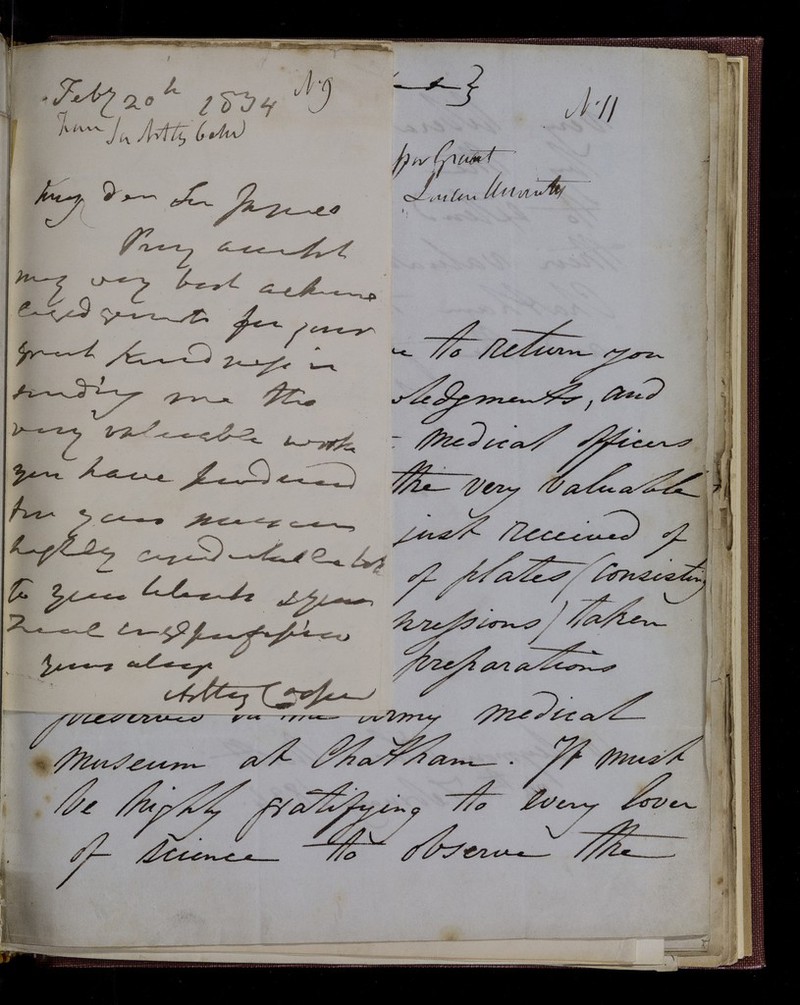 Feby 20th 1834 No 9
From Sir Astley Cooper
My Dear Sir James
Pray accept
my very best acknow
ledgements for your
great kindness in
sending me the
very valuable work
you have produced
for your museum
highly creditable both
to your talents & your
zeal in yr profession
yours always
Astley Cooper
No 11
Grant
London University
to return you
ledgments, and
medical officers
the very valuable
just received of
of plates (consisting
impressions) taken
preparations
preserved in the Army medical
museum at Chatham. It must
be highly gratifying to every lover
of science to observe the